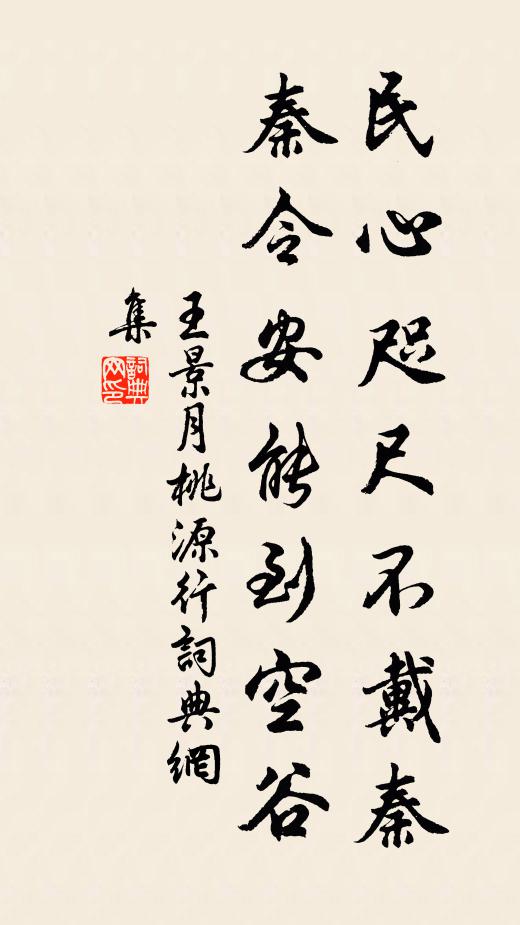 民心咫尺不戴秦
秦令安能到空谷
王景月桃源行詞典網
集
詞典
网印